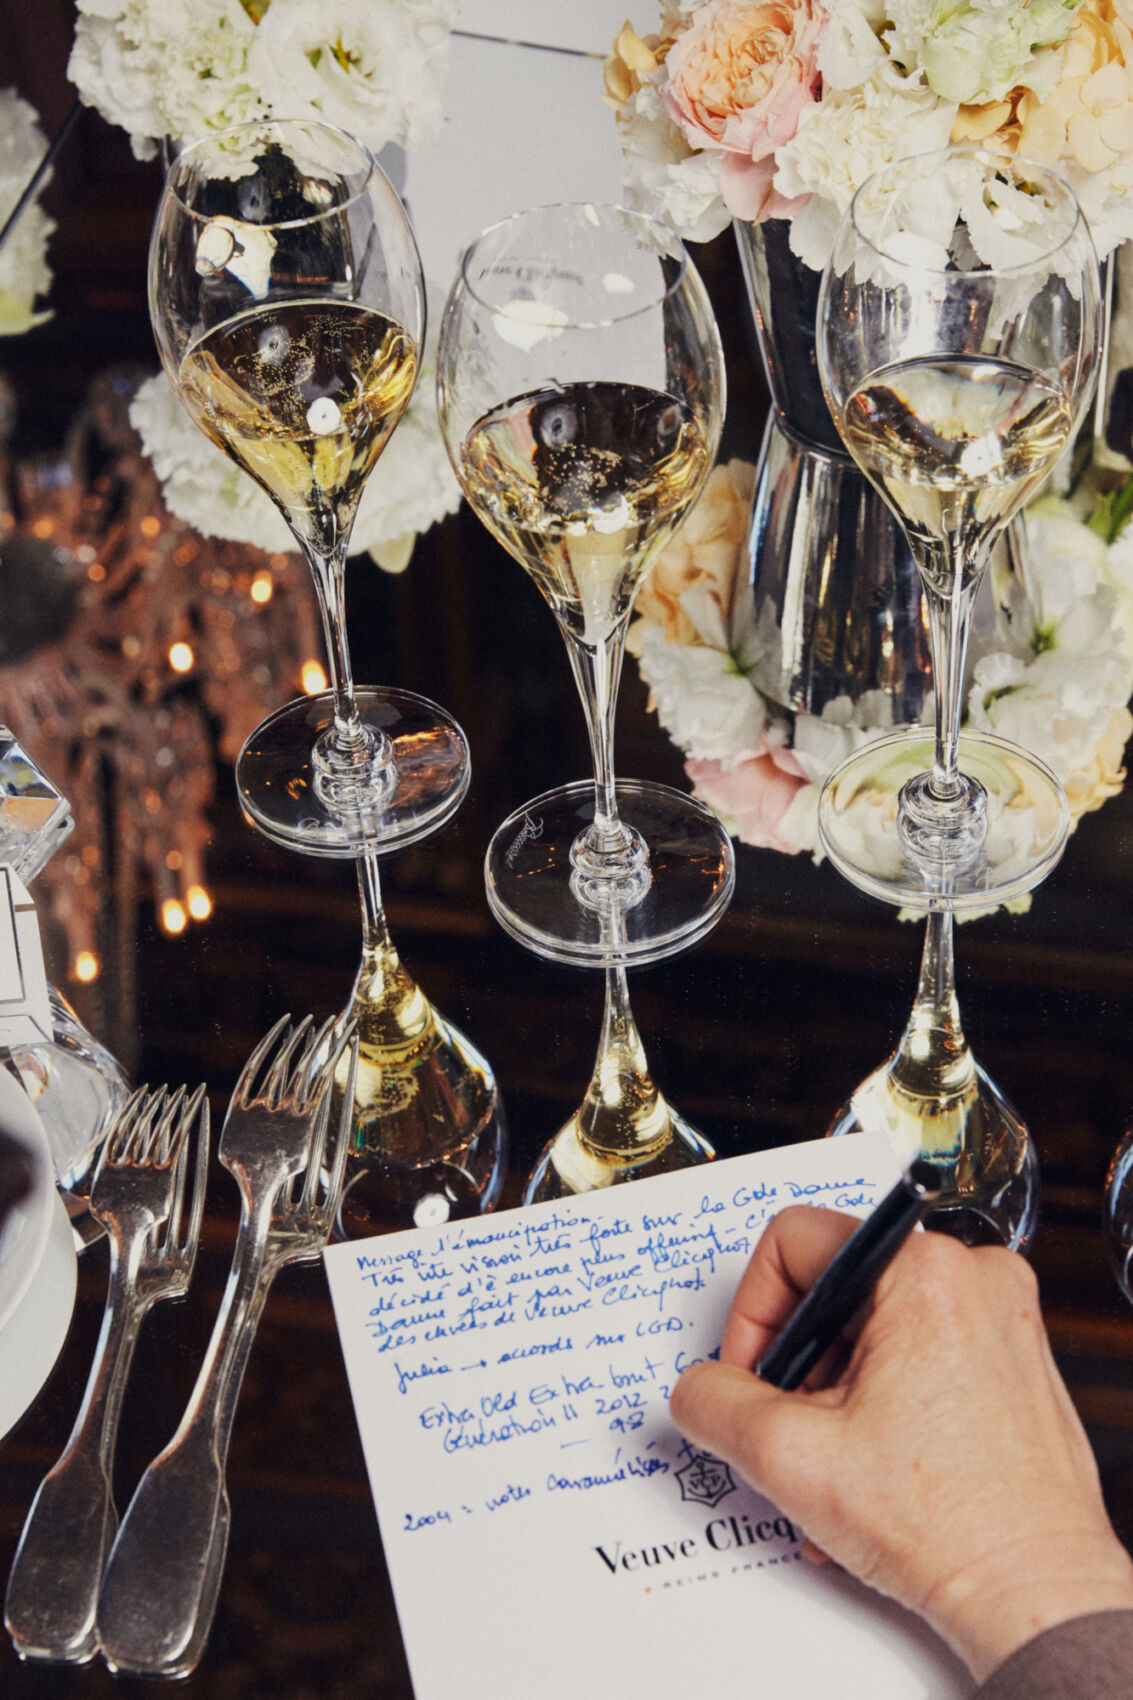 Veuve Clicquot
Baccarat
Message d'émancipation.
Très vite vision très forte sur la Gde Dame
décidé d'è encore plus offering - C'è la Gde
Dame fait par Veuve Clicquot
des cuvées de Veuve Clicquot.
Julia → accords sur LGD.
Extra Old Extra-brut
Génération II 2012
— 98
2004 = notes caramélisées
VCP
Veuve Clicq
REIMS FRANCE